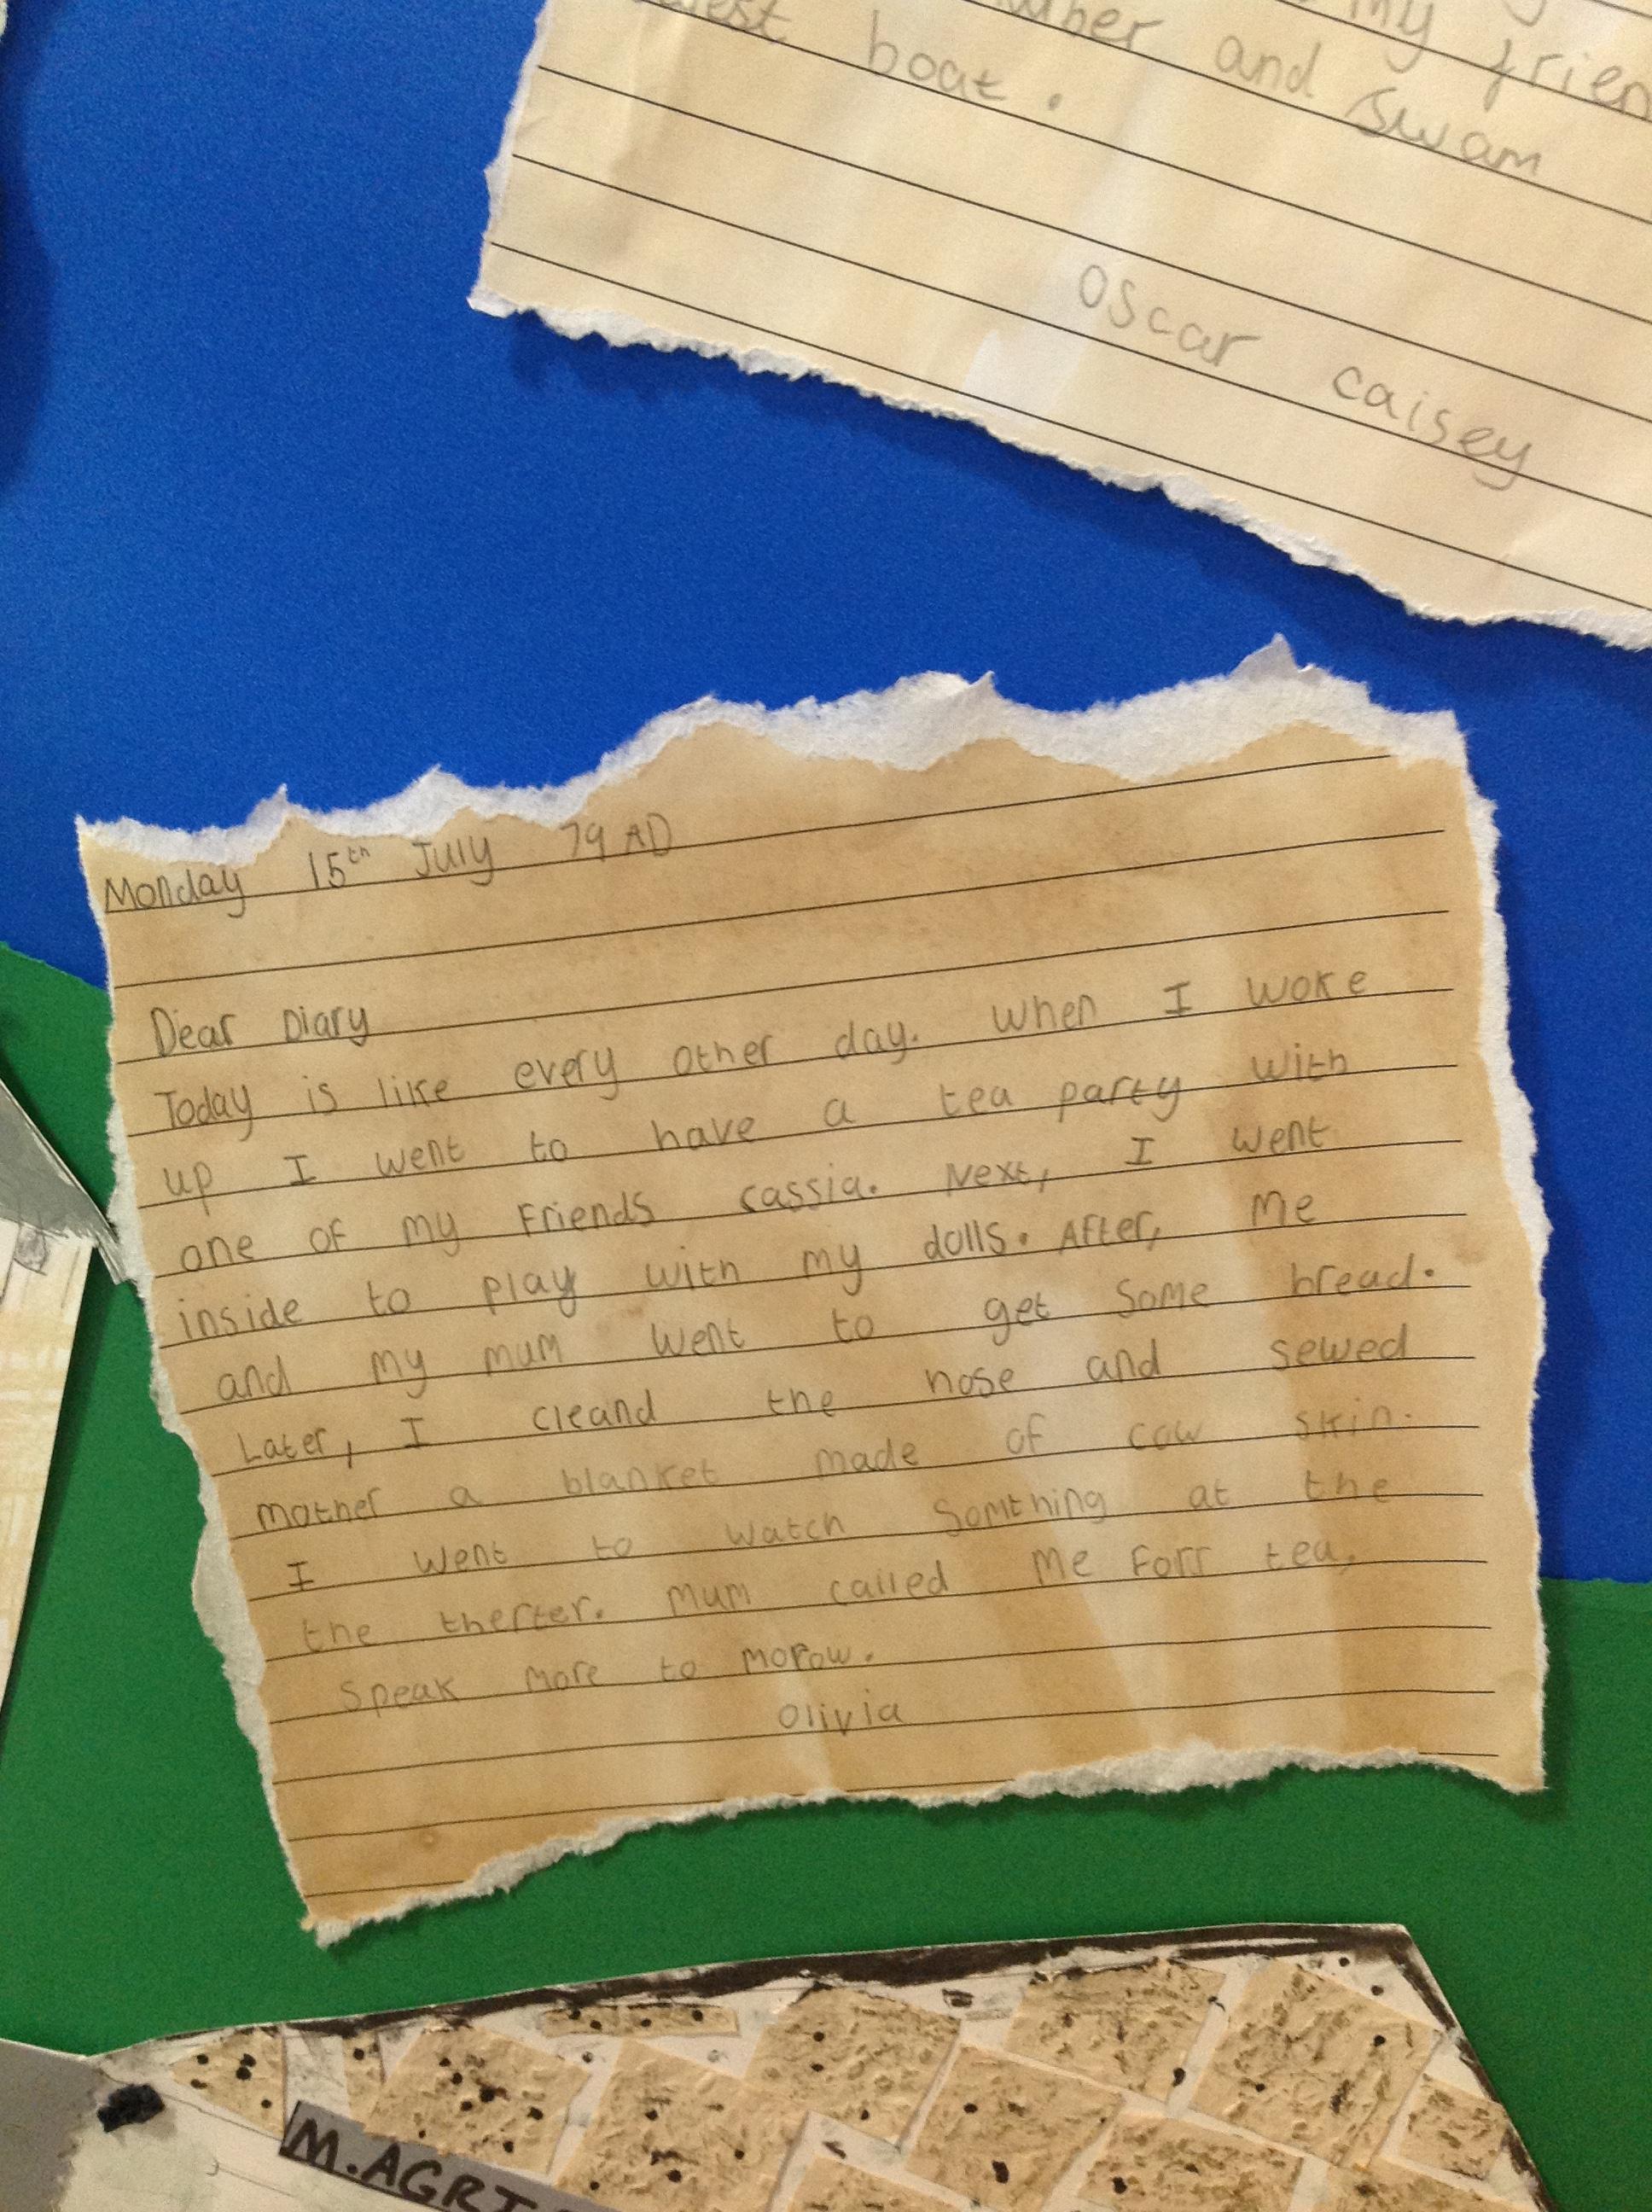 boat. and my frien
Swam
Oscar caisey
Monday 15th July 79 AD
Dear Diary
Today is like every other day. When I woke
up I went to have a tea party with
one of my Friends cassia. Next, I went
inside to play with my dolls. After, me
and my mum went to get some bread.
Later, I cleand the hose and sewed
mother a blanket made of cow skin.
I went to watch somthing at the
the therter. Mum called me Forr tea,
Speak more to morow.
Olivia
M.AGRI